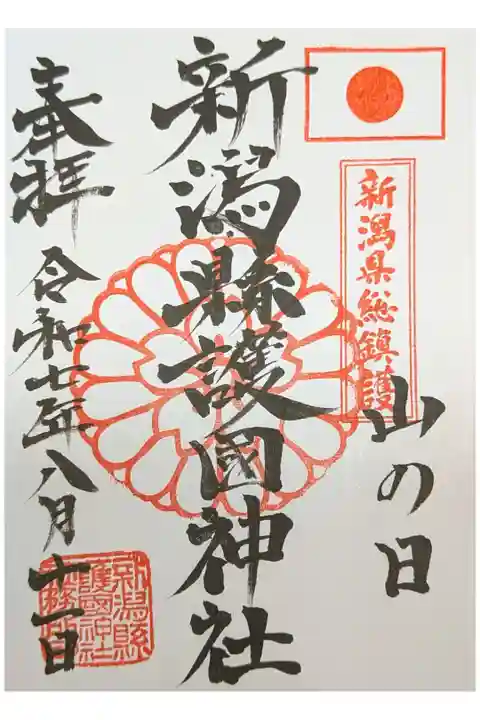 新潟県総鎮護
山の日
新潟縣護國神社
奉拝
令和七年八月十一日
新潟縣
護國神社